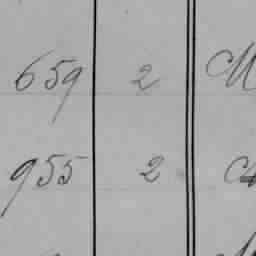 659 2 M
955 2